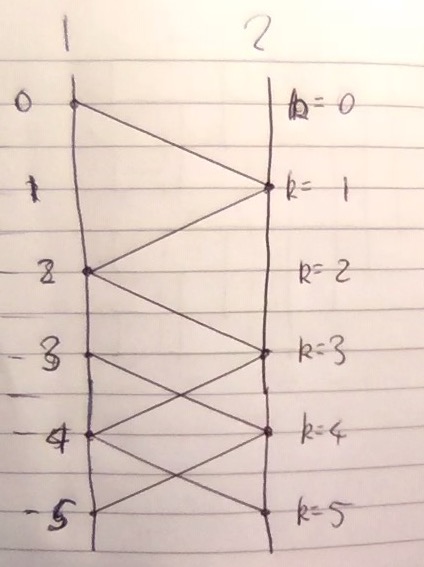 1 2
0 k=0
1 k=1
2 k=2
3 k=3
4 k=4
5 k=5